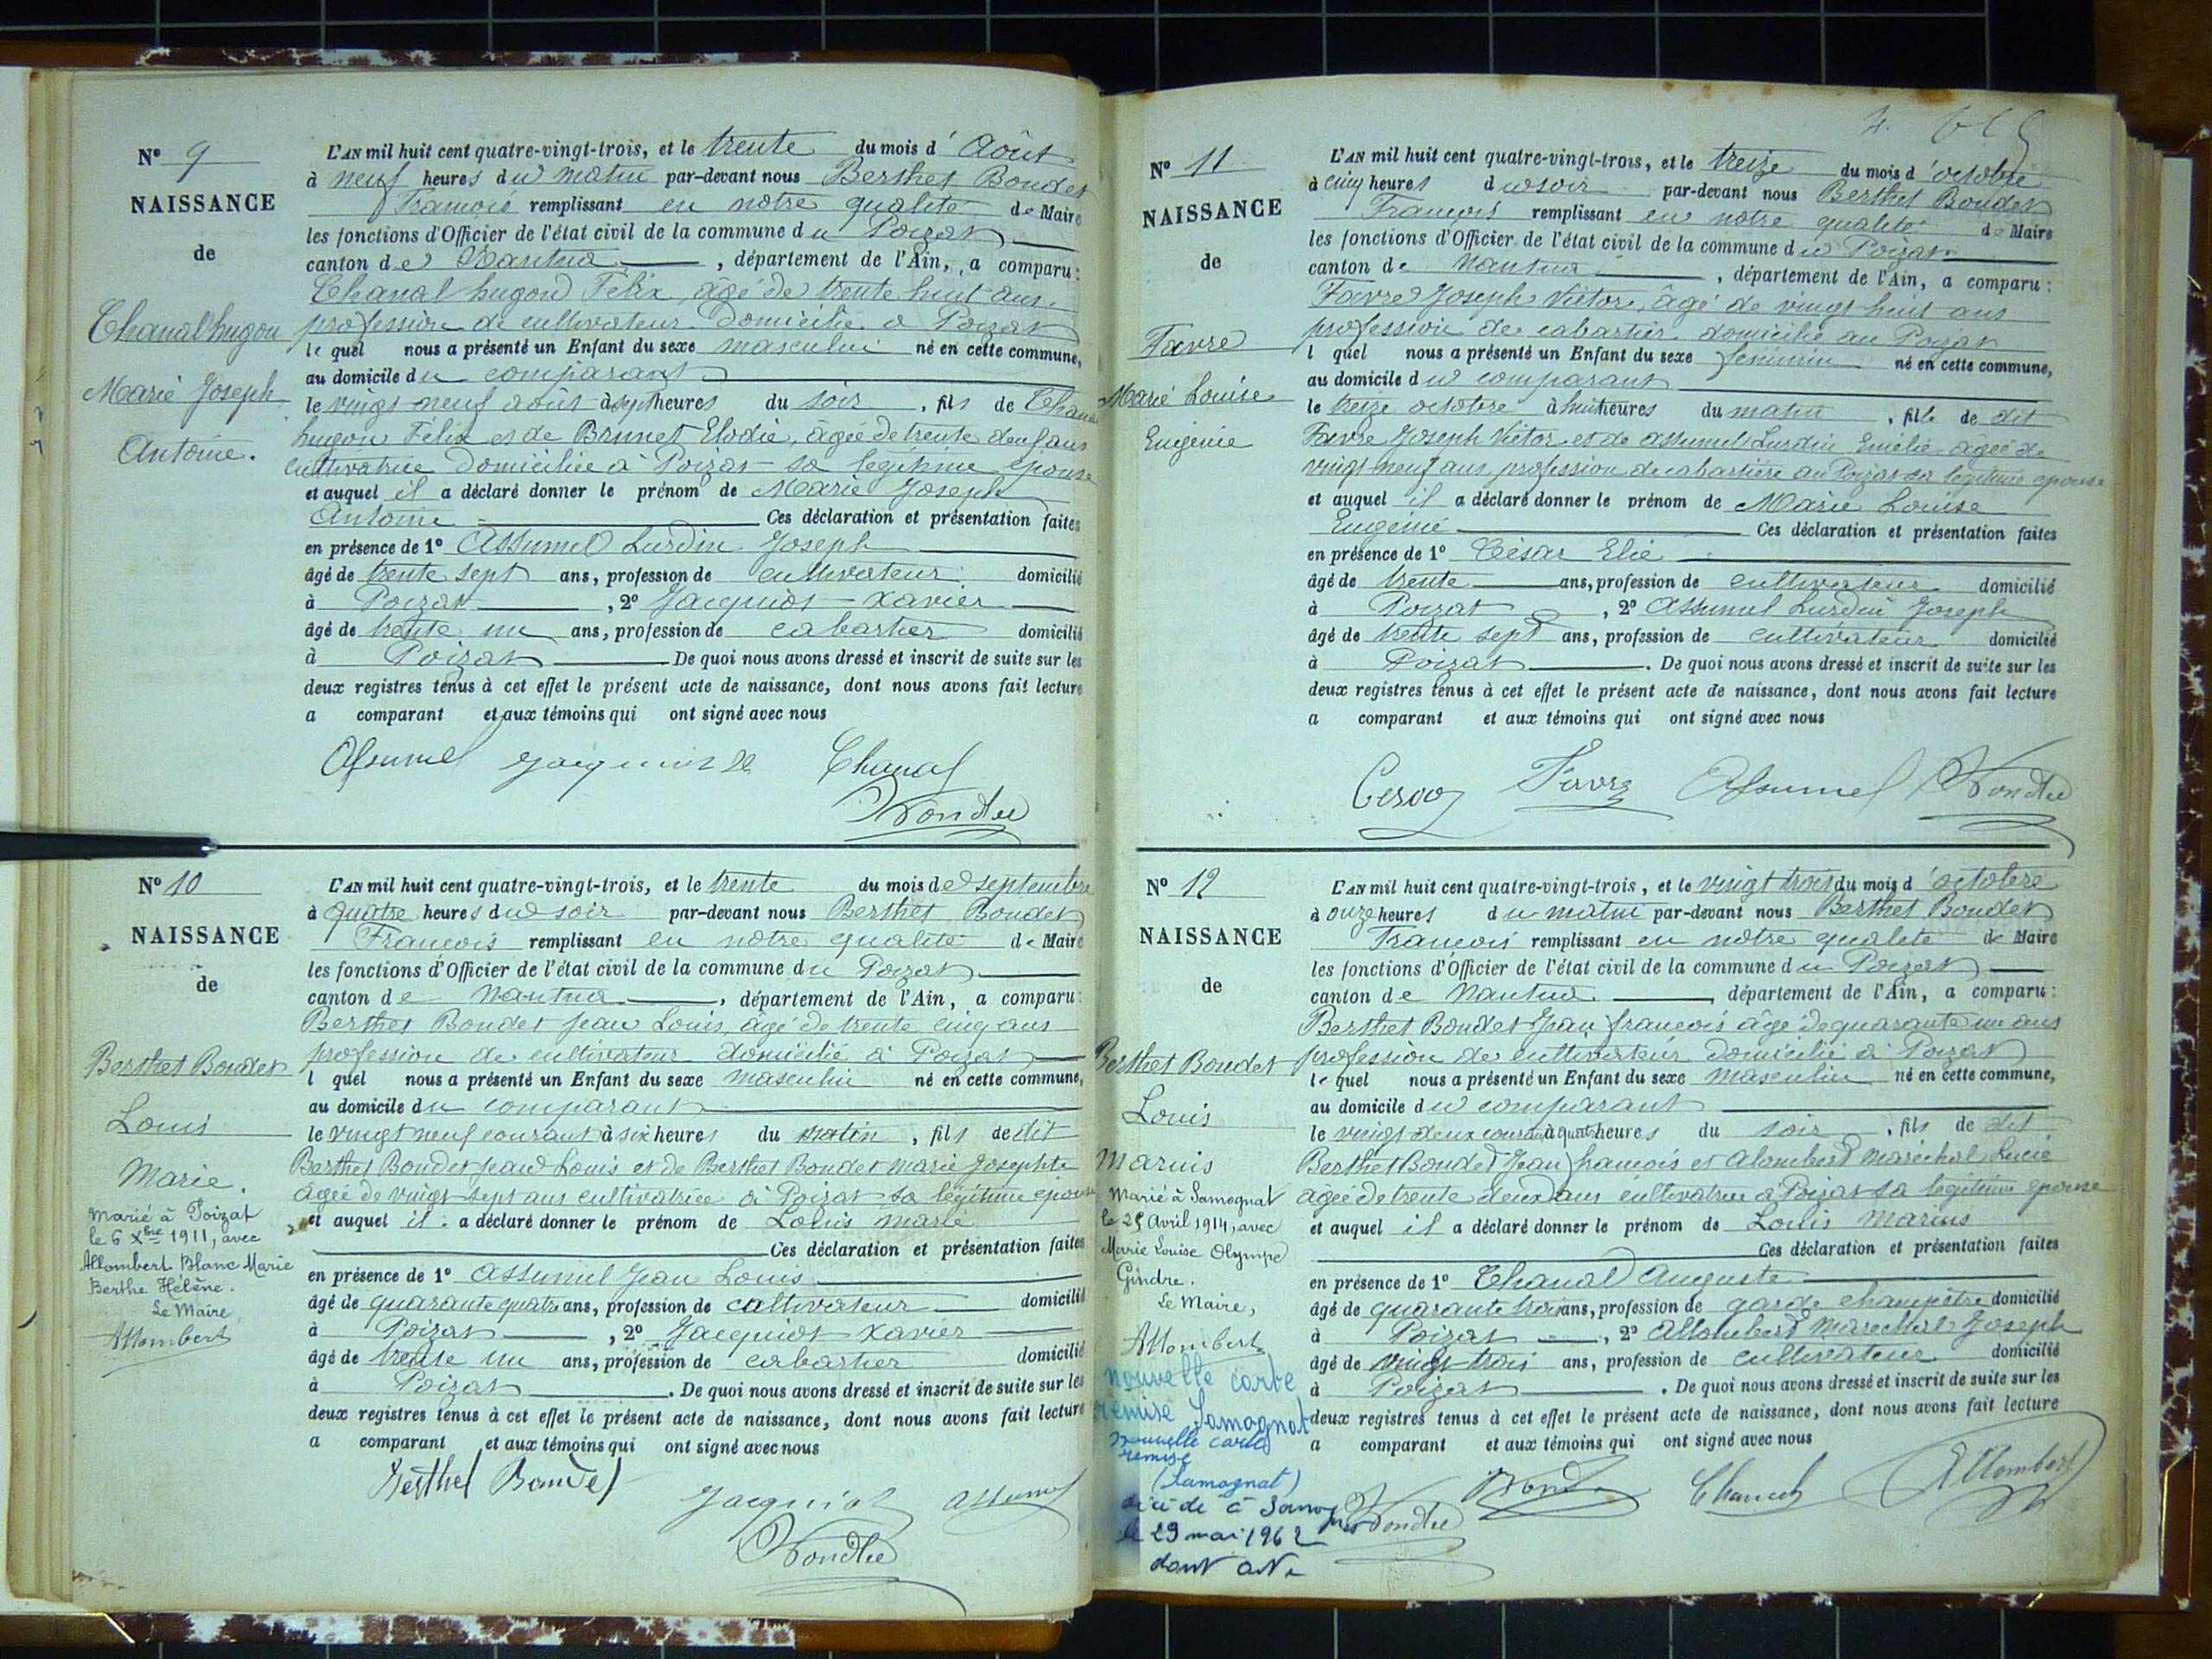 N° 9
NAISSANCE
de
Chanal hugon
Marie Joseph
Antoine.
L'AN mil huit cent quatre-vingt-trois, et le trente du mois d'Août
à neuf heures du matin par-devant nous Berthet Bondet
François remplissant en notre qualité de Maire
les fonctions d'Officier de l'état civil de la commune du Poizat
canton de Nantua, département de l'Ain, a comparu :
Chanal hugon Félix, âgé de trente huit ans.
profession de cultivateur Domicilié à Poizat
le quel nous a présenté un Enfant du sexe masculin né en cette commune,
au domicile du comparant
le vingt neuf août à sept heures du soir, fils de Chanal
hugon Félix et de Brunet Elodie, âgée de trente deux ans
cultivatrice Domiciliée à Poizat sa légitime épouse
et auquel il a déclaré donner le prénom de Marie Joseph
Antoine Ces déclaration et présentation faites
en présence de 1° Assumel Lurdin Joseph
âgé de trente sept ans, profession de cultivateur domicilié
à Poizat, 2° Jacquiot Xavier
âgé de trente un ans, profession de cabartier domicilié
à Poizat De quoi nous avons dressé et inscrit de suite sur les
deux registres tenus à cet effet le présent acte de naissance, dont nous avons fait lecture
a comparant et aux témoins qui ont signé avec nous
Assumel Chanal
N° 10
NAISSANCE
de
Berthet Bondet
Louis
Marie.
Marié à Poizat
le 6 Xbre 1911, avec
Allombert Blanc Marie
Berthe Hélène.
Le Maire,
Allombert
L'AN mil huit cent quatre-vingt-trois, et le trente du mois de septembre
à quatre heures du soir par-devant nous Berthet Bondet
François remplissant en notre qualité de Maire
les fonctions d'Officier de l'état civil de la commune du Poizat
canton de Nantua, département de l'Ain, a comparu :
Berthet Bondet Jean Louis, âgé de trente cinq ans
profession de cultivateur domicilié à Poizat
l quel nous a présenté un Enfant du sexe masculin né en cette commune,
au domicile du comparant
le vingt neuf courant à six heures du matin, fils de dit
Berthet Bondet Jean Louis et de Berthet Bondet Marie Josephte
âgée de vingt sept ans cultivatrice à Poizat sa légitime épouse
et auquel il a déclaré donner le prénom de Louis Marie
Ces déclaration et présentation faites
en présence de 1° Assumel Jean Louis
âgé de quarante quatre ans, profession de cultivateur domicilié
à Poizat, 2° Jacquiot Xavier
âgé de trente un ans, profession de cabartier domicilié
à Poizat. De quoi nous avons dressé et inscrit de suite sur les
deux registres tenus à cet effet le présent acte de naissance, dont nous avons fait lecture
a comparant et aux témoins qui ont signé avec nous
Berthet Bondet Jacquiot Assumel
N° 11
NAISSANCE
de
Favre
Marie Louise
Eugénie
L'AN mil huit cent quatre-vingt-trois, et le treize du mois d'octobre
à cinq heures du soir par-devant nous Berthet Bondet
François remplissant en notre qualité de Maire
les fonctions d'Officier de l'état civil de la commune du Poizat
canton de Nantua, département de l'Ain, a comparu :
Favre Joseph Victor, âgé de vingt huit ans
profession de cabartier domicilié au Poizat
l quel nous a présenté un Enfant du sexe féminin né en cette commune,
au domicile du comparant
le treize octobre à huit heures du matin, fille de dit
Favre Joseph Victor et de Assumel Lurdin Emélie, âgée de
vingt neuf ans, profession de cabartière au Poizat sa légitime épouse
et auquel il a déclaré donner le prénom de Marie Louise
Eugénie Ces déclaration et présentation faites
en présence de 1° César Elie
âgé de trente ans, profession de cultivateur domicilié
à Poizat, 2° Assumel Lurdin Joseph
âgé de trente sept ans, profession de cultivateur domicilié
à Poizat. De quoi nous avons dressé et inscrit de suite sur les
deux registres tenus à cet effet le présent acte de naissance, dont nous avons fait lecture
a comparant et aux témoins qui ont signé avec nous
Favre Assumel
N° 12
NAISSANCE
de
Berthet Bondet
Louis
Marius
Marié à Samognat
le 25 Avril 1914, avec
Marie Louise Olympe
Gindre.
Le Maire,
Allombert
nouvelle carte
remise Samognat
nouvelle carte
remise
(Samognat)
le 29 mai 1962
dont acte
L'AN mil huit cent quatre-vingt-trois, et le vingt trois du mois d'octobre
à onze heures du matin par-devant nous Berthet Bondet
François remplissant en notre qualité de Maire
les fonctions d'Officier de l'état civil de la commune du Poizat
canton de Nantua, département de l'Ain, a comparu :
Berthet Bondet Jean françois âgé de quarante un ans
profession de cultivateur domicilié à Poizat
le quel nous a présenté un Enfant du sexe masculin né en cette commune,
au domicile du comparant
le vingt deux courant à quatre heures du soir, fils de dit
Berthet Bondet Jean françois et Alombert Maréchal Lucie
âgée de trente deux ans cultivatrice à Poizat sa légitime épouse
et auquel il a déclaré donner le prénom de Louis Marius
Ces déclaration et présentation faites
en présence de 1° Chanal Auguste
âgé de quarante trois ans, profession de garde champêtre domicilié
à Poizat, 2° Allombert Maréchal Joseph
âgé de vingt trois ans, profession de cultivateur domicilié
à Poizat. De quoi nous avons dressé et inscrit de suite sur les
deux registres tenus à cet effet le présent acte de naissance, dont nous avons fait lecture
a comparant et aux témoins qui ont signé avec nous
Chanal Allombert